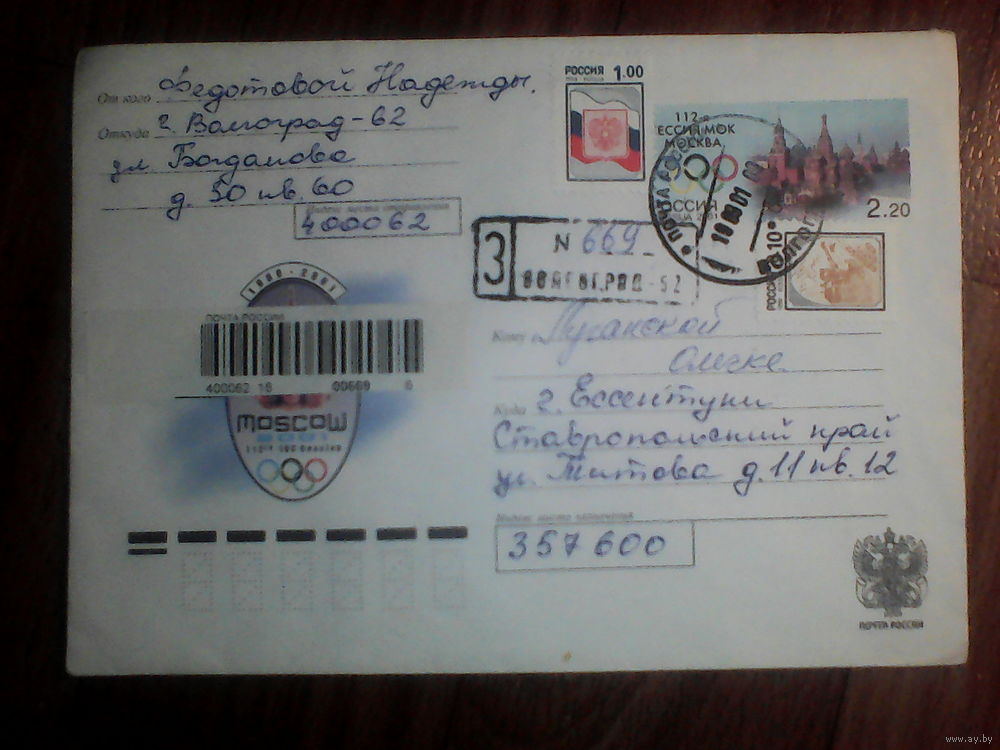 От кого Федотовой Надежды.
Откуда г. Волгоград-62
ул Богданова
д. 50 кв. 60
400062
РОССИЯ 1.00
112-я
ЕССИЯ МОК
МОСКВА
2.20
ПОЧТА
З N 669
ВОЛГОГРАД-62
РОССИЯ
1980-2001
ПОЧТА РОССИИ
400062 16 00669 6
MOSCOW
2001
Кому Луганской
Олечке
Куда г. Ессентуки
Ставропольский край
ул. Титова д. 11 кв. 12
Индекс места назначения
357600
ПОЧТА РОССИИ
www.ay.by